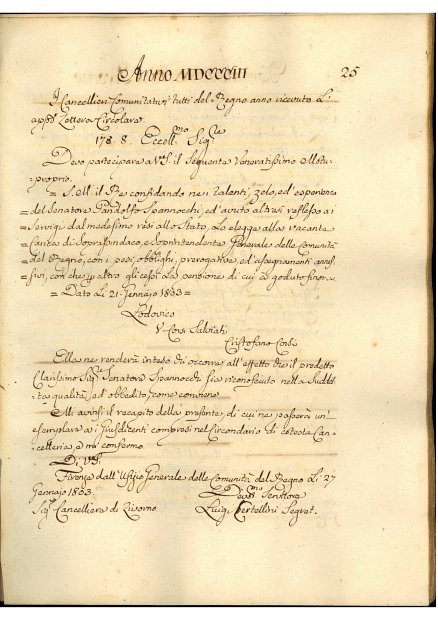 Anno MDCCCIII 25
I Cancellieri Comunitativi tutti del Regno anno ricevuto L'
appo Lettera Circolare
178. 8. Eccell.mo Sig.re
Devo partecipare a VS. il seguente Venoratissimo Motu-
:proprio.
= S. M. il Re confidando nei talenti, zelo, ed esperienza
= del Senatore Pandolfo Spannocchi, ed avuto altresì reflesso ai
= Servizi dal medesimo resi allo Stato, Lo elegge alla vacante
= Carica di Soprassindaco, e Soprintendente Generale delle Comunità
= del Regno, con i pesi, obblighi, prerogative ed assegnamenti annes-
= sivi, con che gli cessi La pensione di cui à goduto finora
= Dato Li 21. Gennajo 1803 =
Lodovico
V. Corsi Salviati
Cristofano Corsi
Ella ne renderà inteso chi occorra all'effetto che il predetto
Clarissimo Sig.re Senatore Spannocchi sia riconosciuto nella Sudd.
ta qualità, ed obbedito come conviene
Mi avvisi il recapito della presente, di cui ne passerà un'
esemplare a i Giusdicenti compresi nel Circondario di cotesta Can-
celleria e mi confermo
Di VS.
Firenze dall'Ufizio Generale delle Comunità del Regno Li 27
Gennajo 1803
Dev.mo Servitore
Sig.re Cancelliere di Livorno Luigi Bertellini Segret.